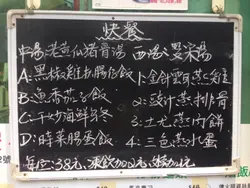 快餐
中湯:老黃瓜豬骨湯 西湯:羅宋湯
A:黑椒雞扒腸飯 1:金針雲耳蒸雞
B:魚香茄子飯 2:豉汁蒸排骨
C:干炒海鮮 3:土尤蒸肉餅
D:時菜腸蛋飯 4:三色蒸水蛋
每位:38元,凍飲加2元